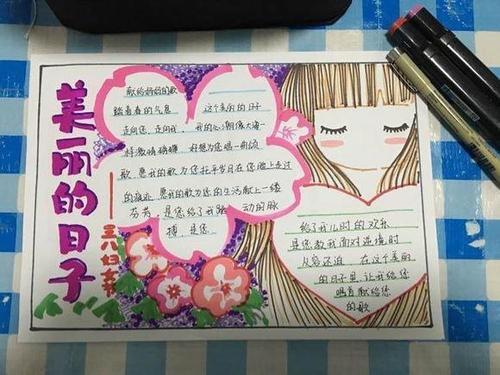 美丽的日子
——三八妇女节
献给妈妈的歌
踏着春的气息 这个美好的日子
走向您,走向我,我的心潮像大海一
样激情磅礴 好想为您唱一首颂
歌 愿我的歌力您托平岁月在您脸上走过
的痕迹 愿我的歌为您的生活献上一缕
芬芳,是您给了我 动的脉
搏,是您
给了我儿时的欢乐
是您教我面对逆境时
从容还迫 在这个美丽
的日子里 让我给您
唱首献给您
的歌